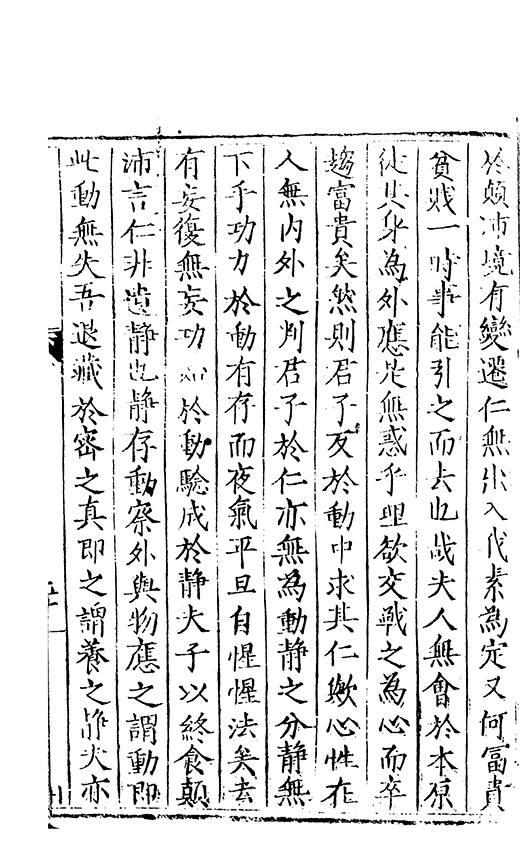 於顛沛境有變遷仁無出入代素為定又何富貴
貧賤一時事能引之而去也哉夫人無會於本原
徒其身為外應是無惑乎理欲交戰之為心而卒
趨富貴矣然則君子友於動中求其仁歟心性在
人無內外之判君子於仁亦無為動靜之分靜無
下手功力於動有存而夜氣平旦自惺惺法矣去
有妄復無妄功 於動驗成於靜夫子以終食顛
沛言仁非遺靜也靜存動察外與物應之謂動即
此動無失吾退藏於密之真即之謂養之靜夫亦